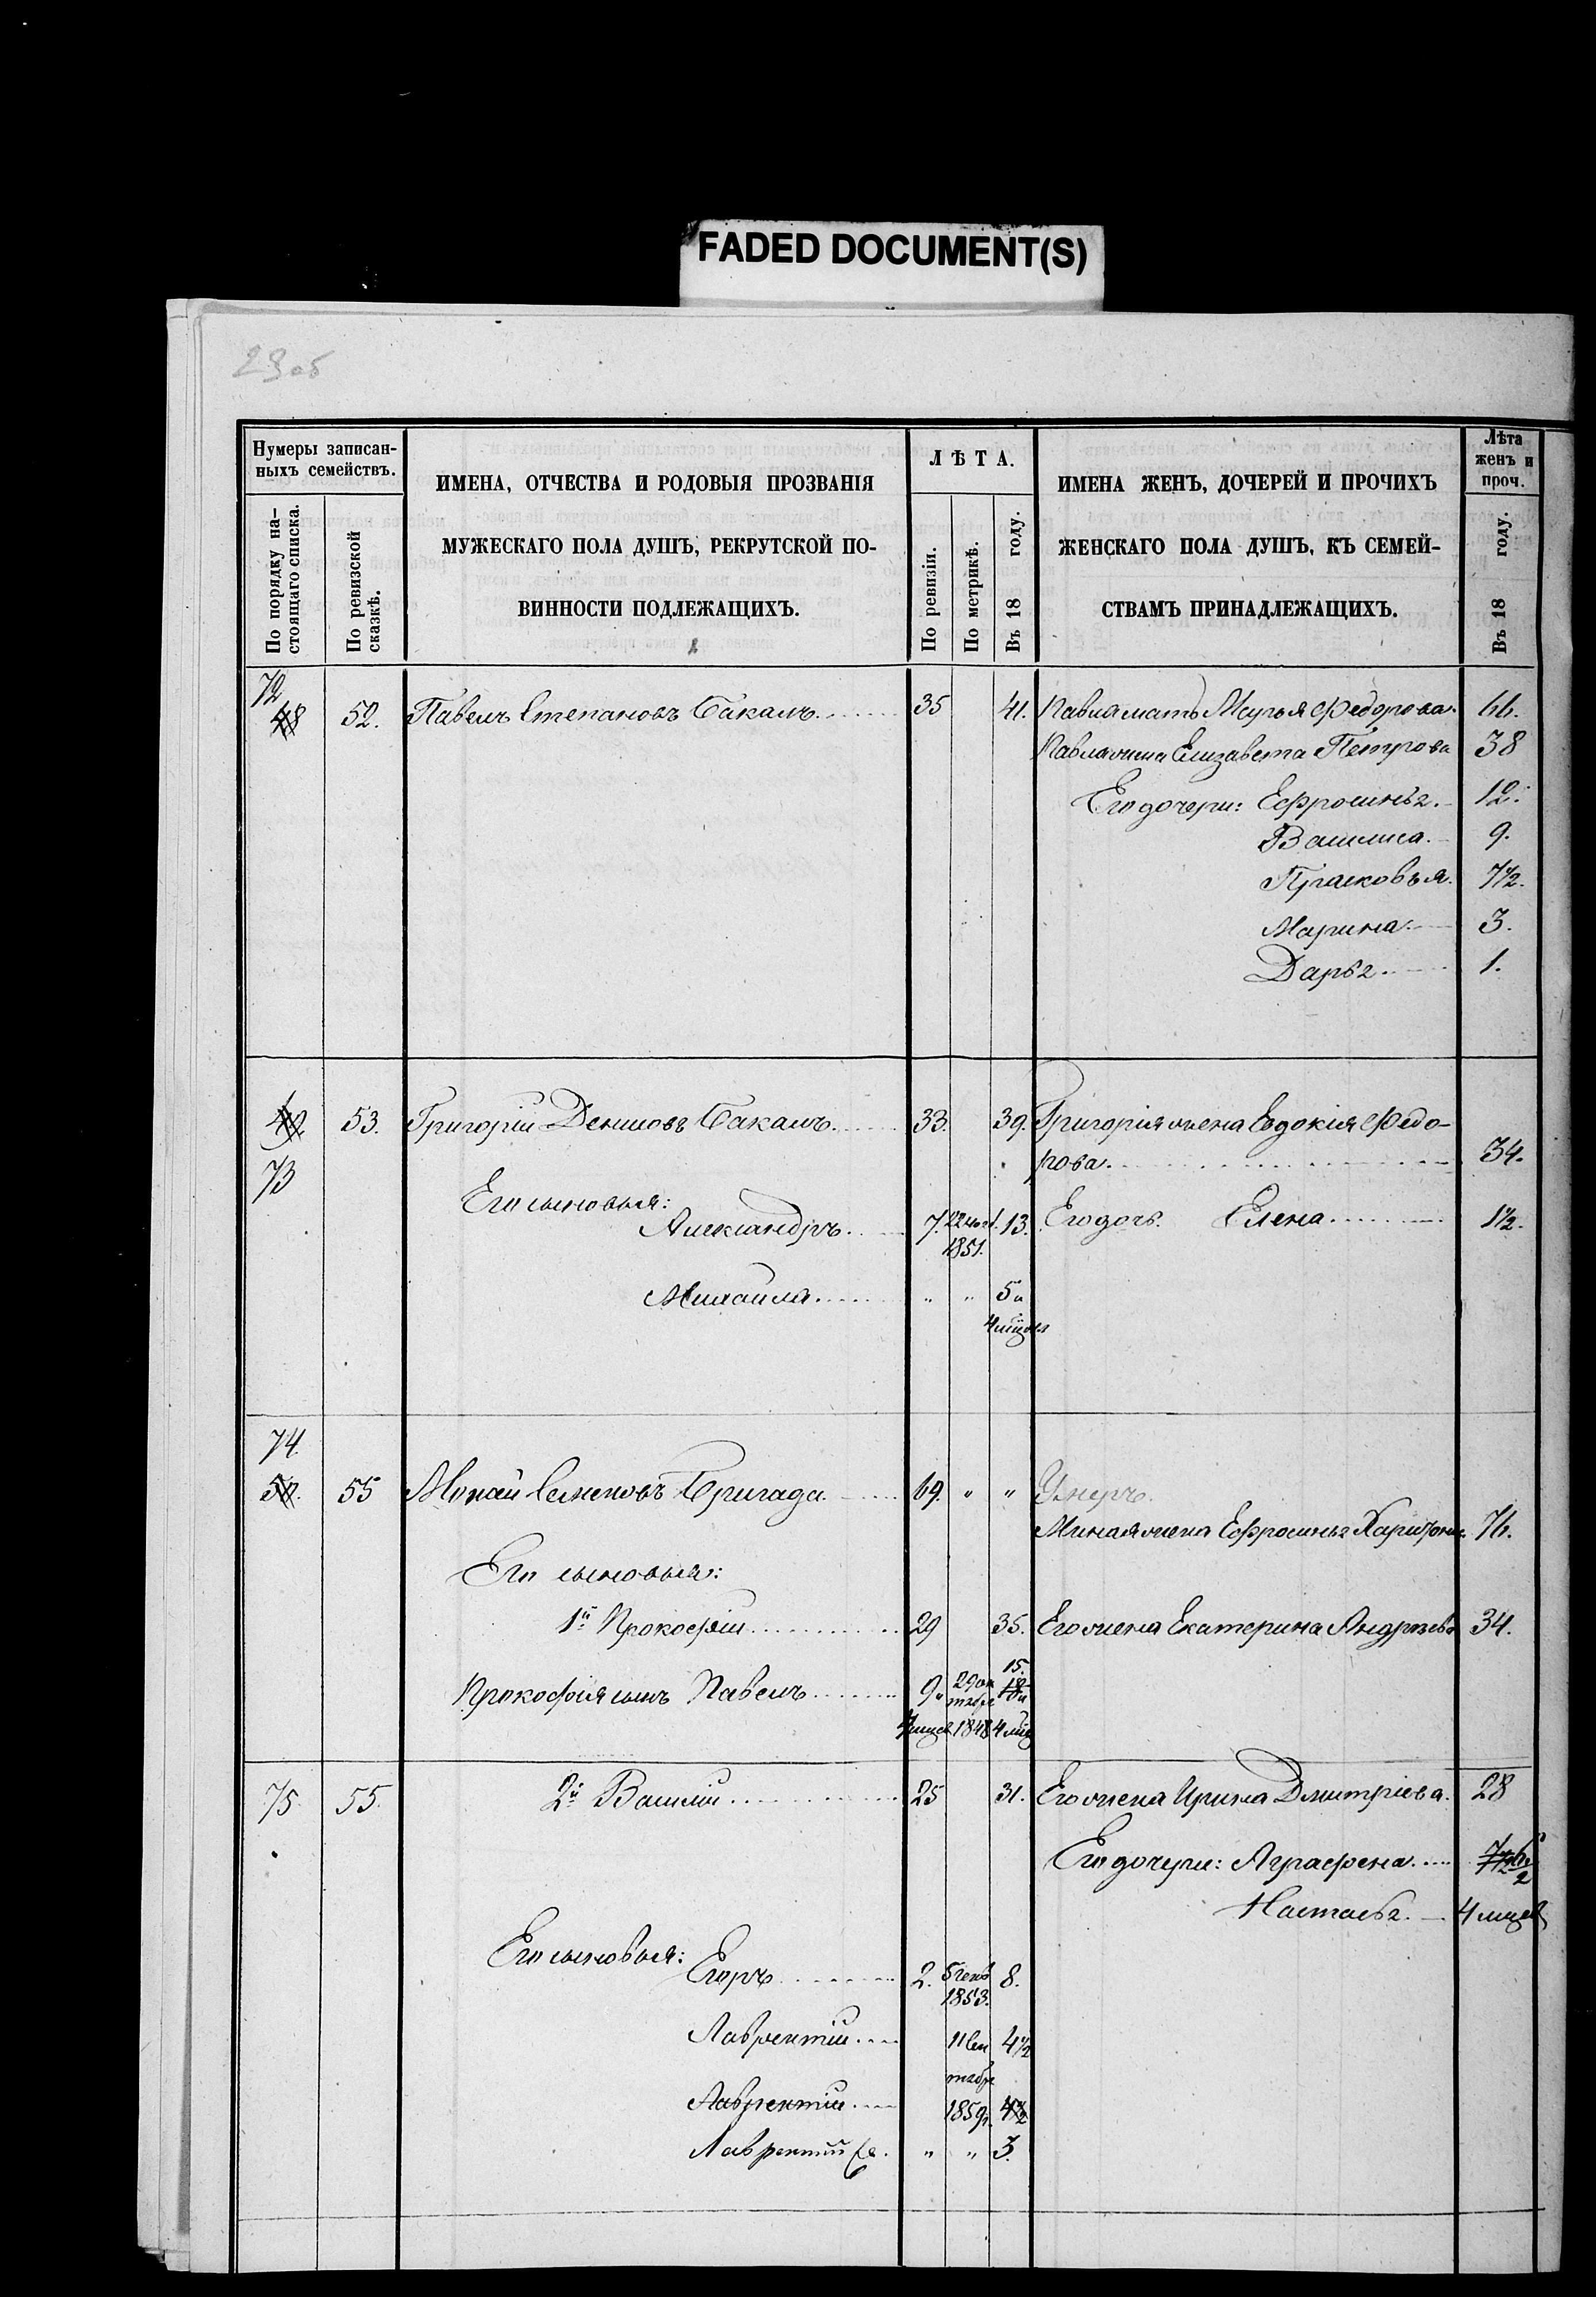 FADED DOCUMENT(S)
29об
Нумеры записан-
ныхъ семействъ.
По порядку на-
стоящаго списка.
По ревизской
сказкѣ.
ИМЕНА, ОТЧЕСТВА И РОДОВЫЯ ПРОЗВАНІЯ
МУЖЕСКАГО ПОЛА ДУШЪ, РЕКРУТСКОЙ ПО-
ВИННОСТИ ПОДЛЕЖАЩИХЪ.
ЛѢТА.
По ревизіи.
По метрикѣ.
Въ 18 году.
ИМЕНА ЖЕНЪ, ДОЧЕРЕЙ И ПРОЧИХЪ
ЖЕНСКАГО ПОЛА ДУШЪ, КЪ СЕМЕЙ-
СТВАМЪ ПРИНАДЛЕЖАЩИХЪ.
Лѣта
женъ и
проч.
Въ 18 году.
72
48 52. Павелъ Степановъ Бакалъ 35 41. Павла мать Марья Федорова 66.
Павла жена Елизавета Петрова 38
Его дочери: Ефросинья 12.
Василиса 9.
Прасковья 7½.
Марина 3.
Дарья 1.
49 53. Григорій Денисовъ Бакалъ 33. 39. Григорія жена Евдокія Федо-
73 рова 34.
Его сыновья:
Александръ 7. 22 1851. 13. Его дочь Елена 1½.
Михаила " " 5 и
4 мѣсяца
74.
50. 55 Минай Семеновъ Бригада 69. " " Умеръ.
Миная жена Ефросинья 76.
Его сыновья:
1й Прокофій 29 35. Его жена Екатерина Андреева 34.
Прокофія сынъ Павелъ 9 и 29 ок 15.
тября
мѣсяц 1848 4 мѣс
75. 55. 2й Василій 25 31. Его жена Ирина Дмитріева 28
Его дочери: Аграфена
Настасья 4 мѣсяц
Его сыновья: Егоръ 2. 8.
1853.
Лаврентій 11 Сен 4½
тября
Лаврентій 1859г. 4½
Лаврентій " " 3.